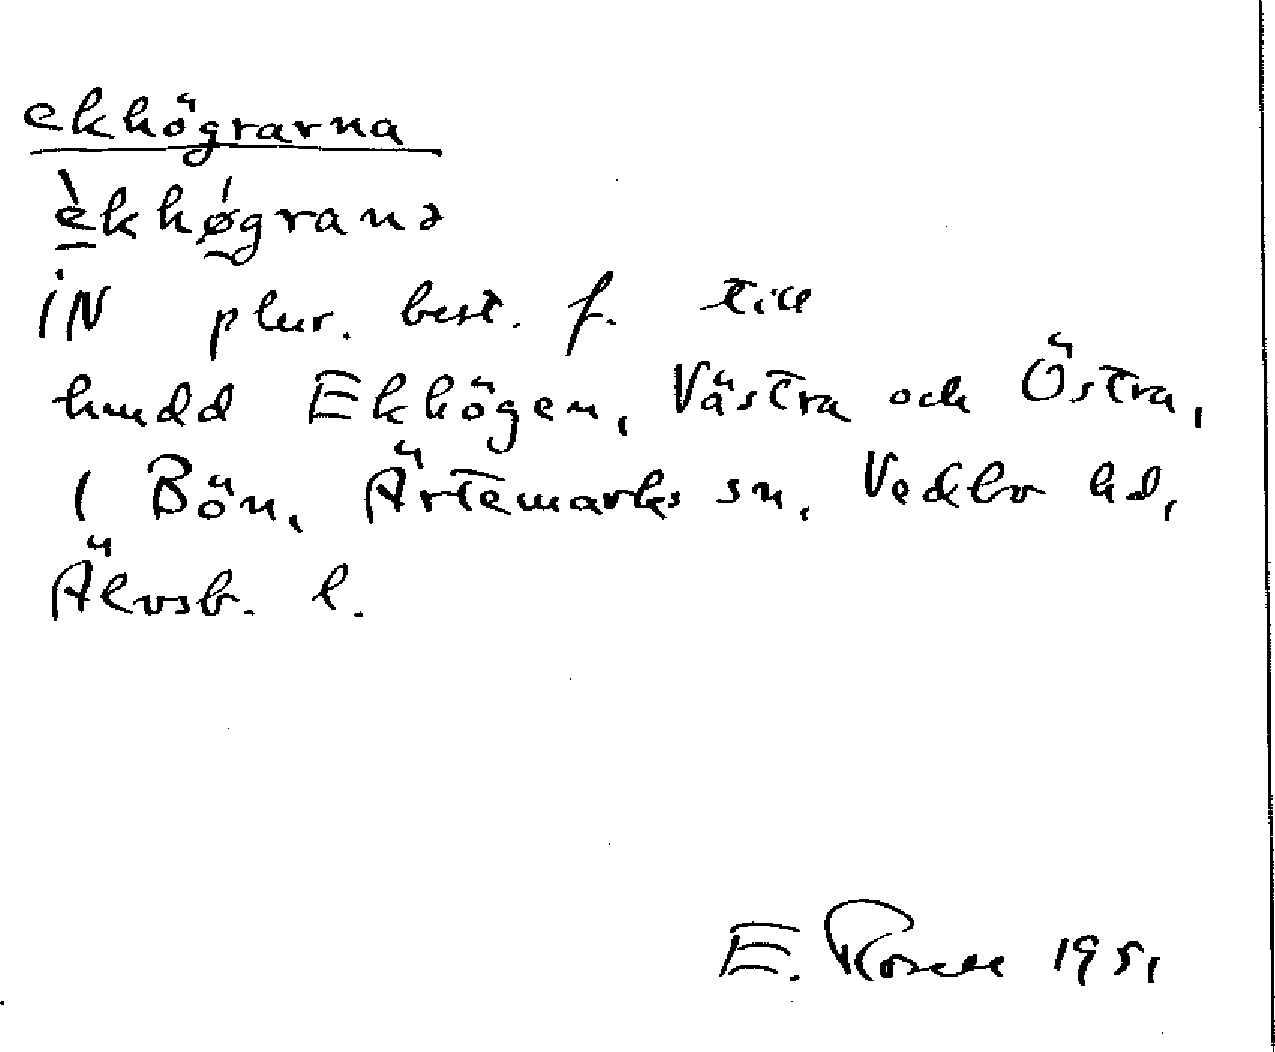 ekhögrarna
èkhǿgranə
iN plur. best. f. till
hmdd Ekhögen, Västra och Östra,
i Bön, Ärtemarks sn, Vedbo hd,
Älvsb. l.
E. Rosell 1951